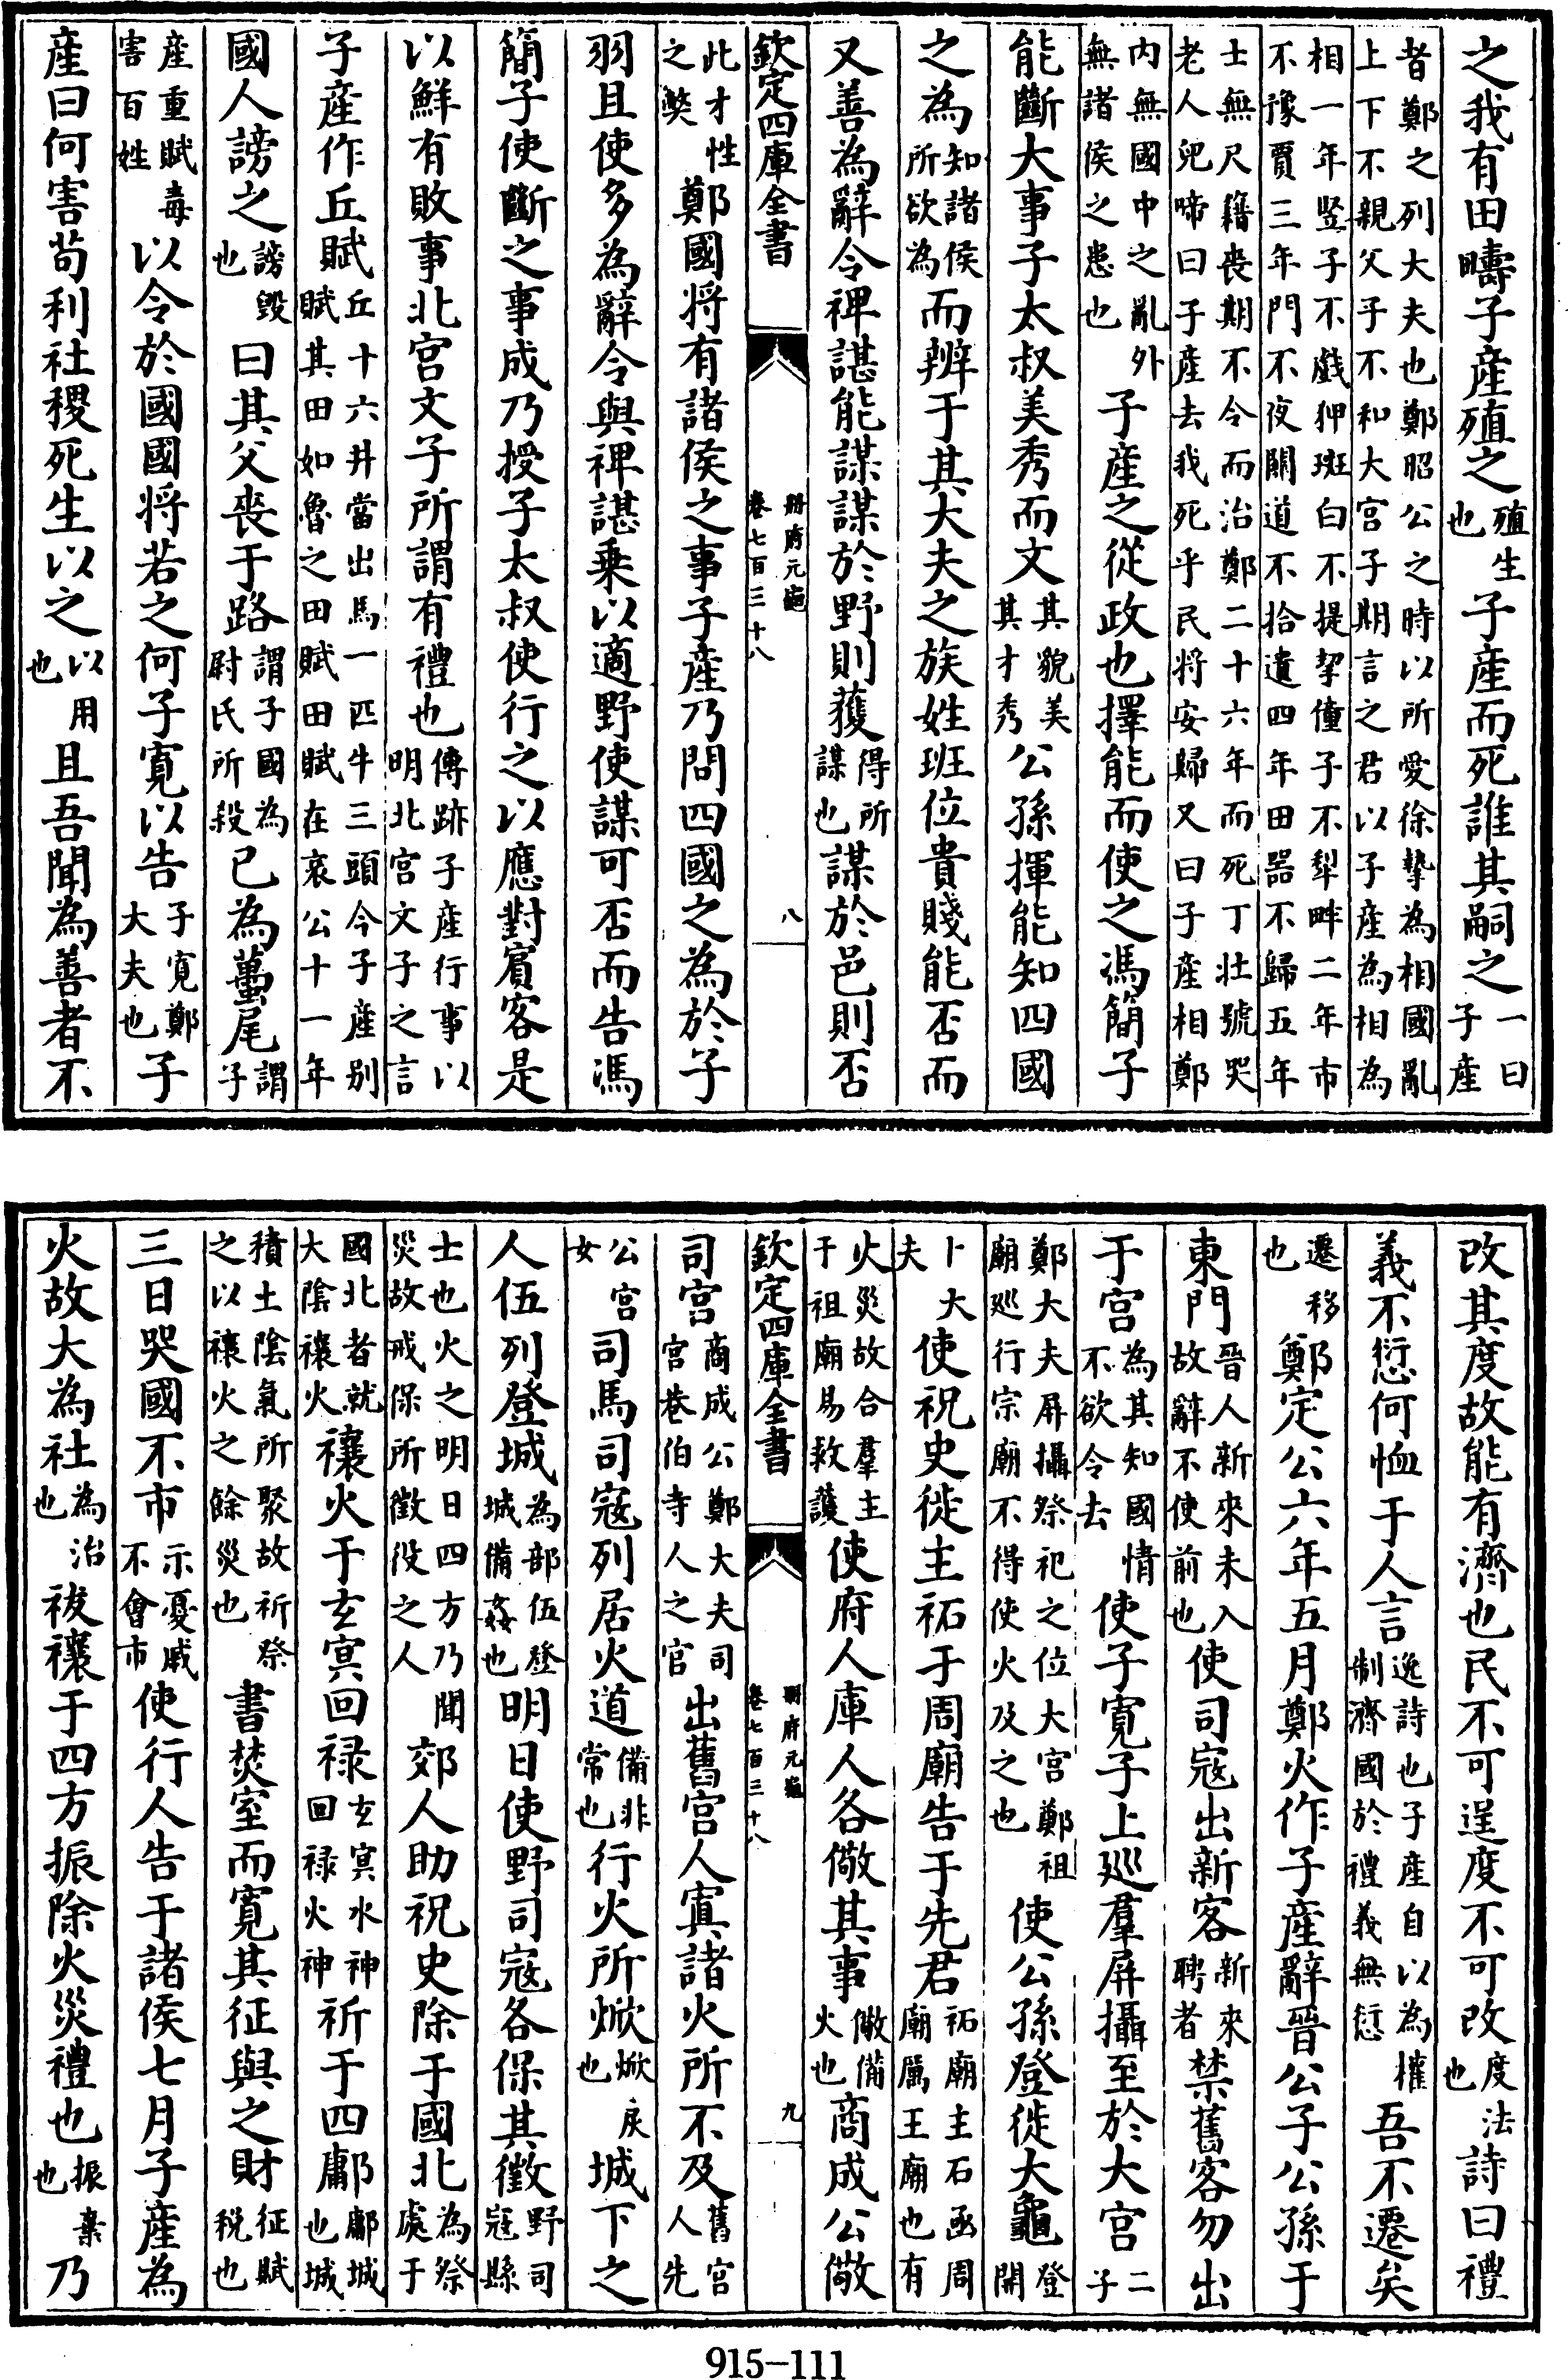 之我有田疇子産殖之殖生也子産而死誰其嗣之一曰子産
者鄭之列大夫也鄭昭公之時以所愛徐摯為相國亂上下不親父子不和大宫子期言之君以子産為相為
相一年豎子不戲狎斑白不提挈僮子不犁畔二年市不豫賈三年門不夜關道不拾遺四年田器不歸五年
士無尺籍喪期不令而治鄭二十六年而死丁壯號哭老人兒啼曰子産去我死乎民将安歸又曰子産相鄭
内無國中之亂外無諸侯之患也子産之從政也擇能而使之馮簡子
能斷大事子太叔美秀而文其貌美其才秀公孫揮能知四國
之為知諸侯所欲為而辨于其大夫之族姓班位貴賤能否而
又善為辭令禆諶能謀謀於野則獲得所謀也謀於邑則否
欽定四庫全書 册府元龜卷七百三十八 八
此才性之獘鄭國将有諸侯之事子産乃問四國之為於子
羽且使多為辭令與禆諶乗以適野使謀可否而告馮
簡子使斷之事成乃授子太叔使行之以應對賓客是
以鮮有敗事北宫文子所謂有禮也傳跡子産行事以明北宫文子之言
子産作丘賦丘十六井當出馬一匹牛三頭今子産别賦其田如魯之田賦田賦在哀公十一年
國人謗之謗毁也曰其父喪于路謂子國為尉氏所殺已為蠆尾謂子
産重賦毒害百姓以令於國國将若之何子寛以告子寛鄭大夫也子
産曰何害茍利社稷死生以之以用也且吾聞為善者不
改其度故能有濟也民不可逞度不可改度法也詩曰禮
義不愆何恤于人言逸詩也子産自以為權制濟國於禮義無愆吾不遷矣
遷移也鄭定公六年五月鄭火作子産辭晉公子公孫于
東門晉人新來未入故辭不使前也使司寇出新客新來聘者禁舊客勿出
于宫為其知國情不欲令去使子寛子上廵羣屏攝至於大宫二子
鄭大夫屏攝祭祀之位大宫鄭祖廟廵行宗廟不得使火及之也使公孫登徙大龜登開
卜大夫使祝史徙主祏于周廟告于先君祏廟主石函周廟厲王廟也有
火災故合羣主于祖廟易救護使府人庫人各儆其事儆備火也商成公儆
欽定四庫全書 册府元龜卷七百三十八 九
司宫商成公鄭大夫司宫巷伯寺人之官出舊宫人寘諸火所不及舊宫人先
公宫女司馬司寇列居火道備非常也行火所焮焮戾也城下之
人伍列登城為部伍登城備姦也明日使野司寇各保其徵野司寇縣
士也火之明日四方乃聞災故戒保所徵役之人郊人助祝史除于國北為祭處于
國北者就大隂禳火禳火于𤣥冥回禄𤣥冥水神回禄火神祈于四鄘鄘城也城
積土隂氣所聚故祈祭之以禳火之餘災也書焚室而寛其征與之財征賦税也
三日哭國不市示憂戚不會市使行人告于諸侯七月子産為
火故大為社為治也祓禳于四方振除火災禮也振棄也乃
915-111